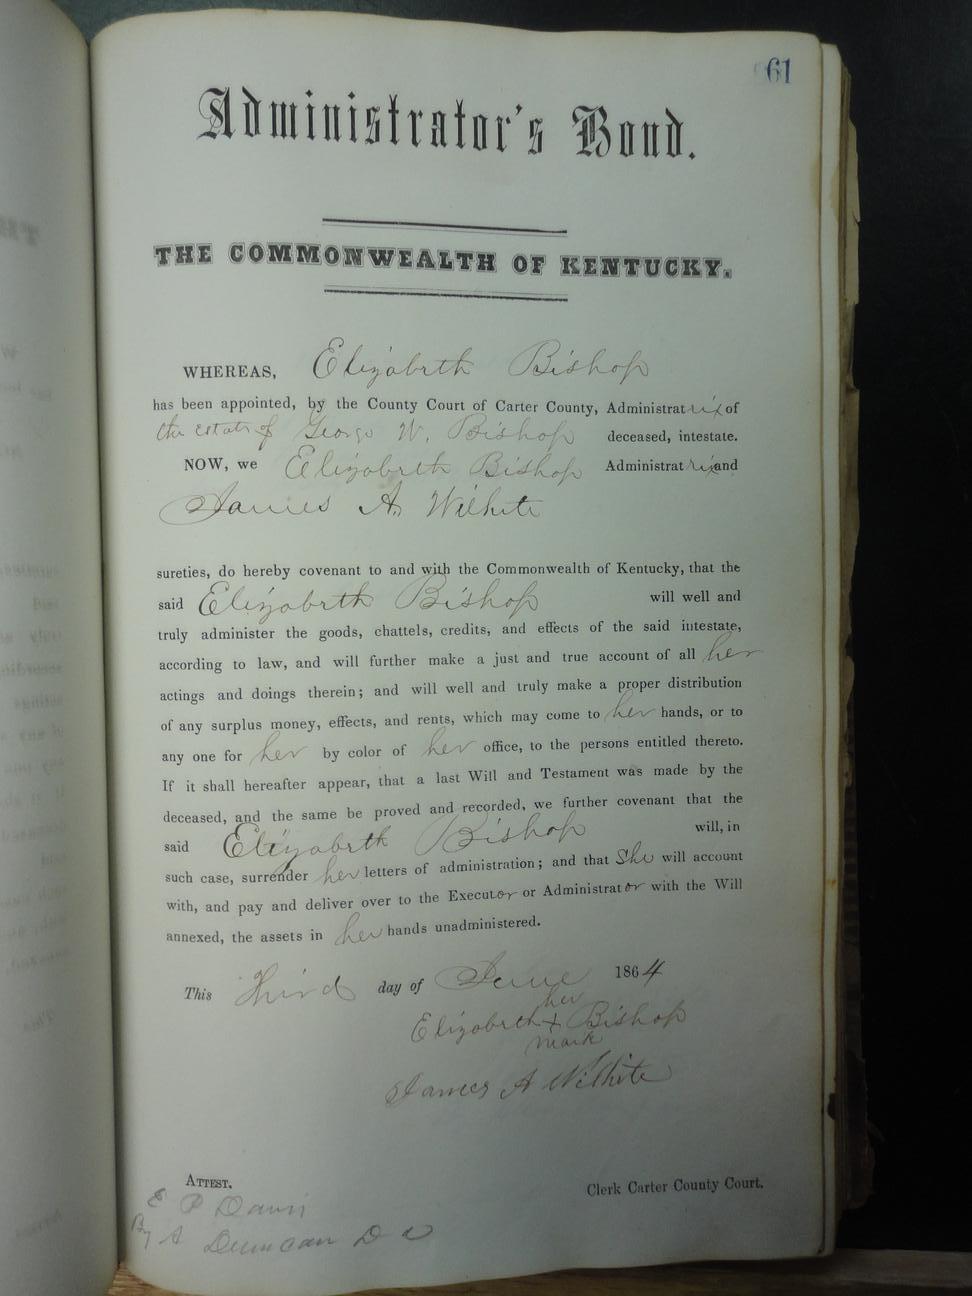 61
Administrator's Bond.
THE COMMONWEALTH OF KENTUCKY.
WHEREAS, Elizabeth Bishop
has been appointed, by the County Court of Carter County, Administratrix of
the estate of George W. Bishop deceased, intestate.
NOW, we Elizabeth Bishop Administratrix and
James A. Wilhite
sureties, do hereby covenant to and with the Commonwealth of Kentucky, that the
said Elizabeth Bishop will well and
truly administer the goods, chattels, credits, and effects of the said intestate,
according to law, and will further make a just and true account of all her
actings and doings therein; and will well and truly make a proper distribution
of any surplus money, effects, and rents, which may come to her hands, or to
any one for her by color of her office, to the persons entitled thereto.
If it shall hereafter appear, that a last Will and Testament was made by the
deceased, and the same be proved and recorded, we further covenant that the
said Elizabeth Bishop will, in
such case, surrender her letters of administration; and that She will account
with, and pay and deliver over to the Executor or Administrator with the Will
annexed, the assets in her hands unadministered.
This Third day of June 1864
her
Elizabeth + Bishop
mark
James A Wilhite
ATTEST.
Clerk Carter County Court.
E P Davis
By A Duncan D C